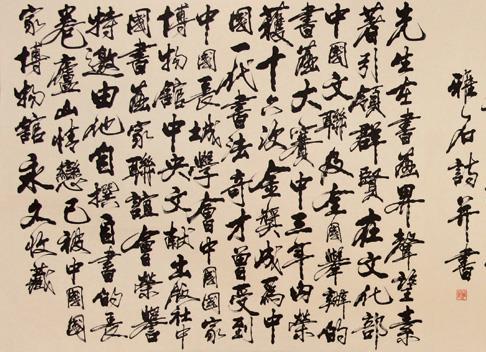 雅石詩并書
先生在書畫界聲望素
著引領群賢在文化部
中國文聯及全國舉辦的
書畫大賽中三年内榮
獲十六次金獎成爲中
國一代書法奇才曾受到
中國長城學會中國國家
博物館中央文献出版社中
國書畫家聯誼會榮譽
特邀由他自撰自書的長
卷廬山情戀已被中國國
家博物館永久收藏